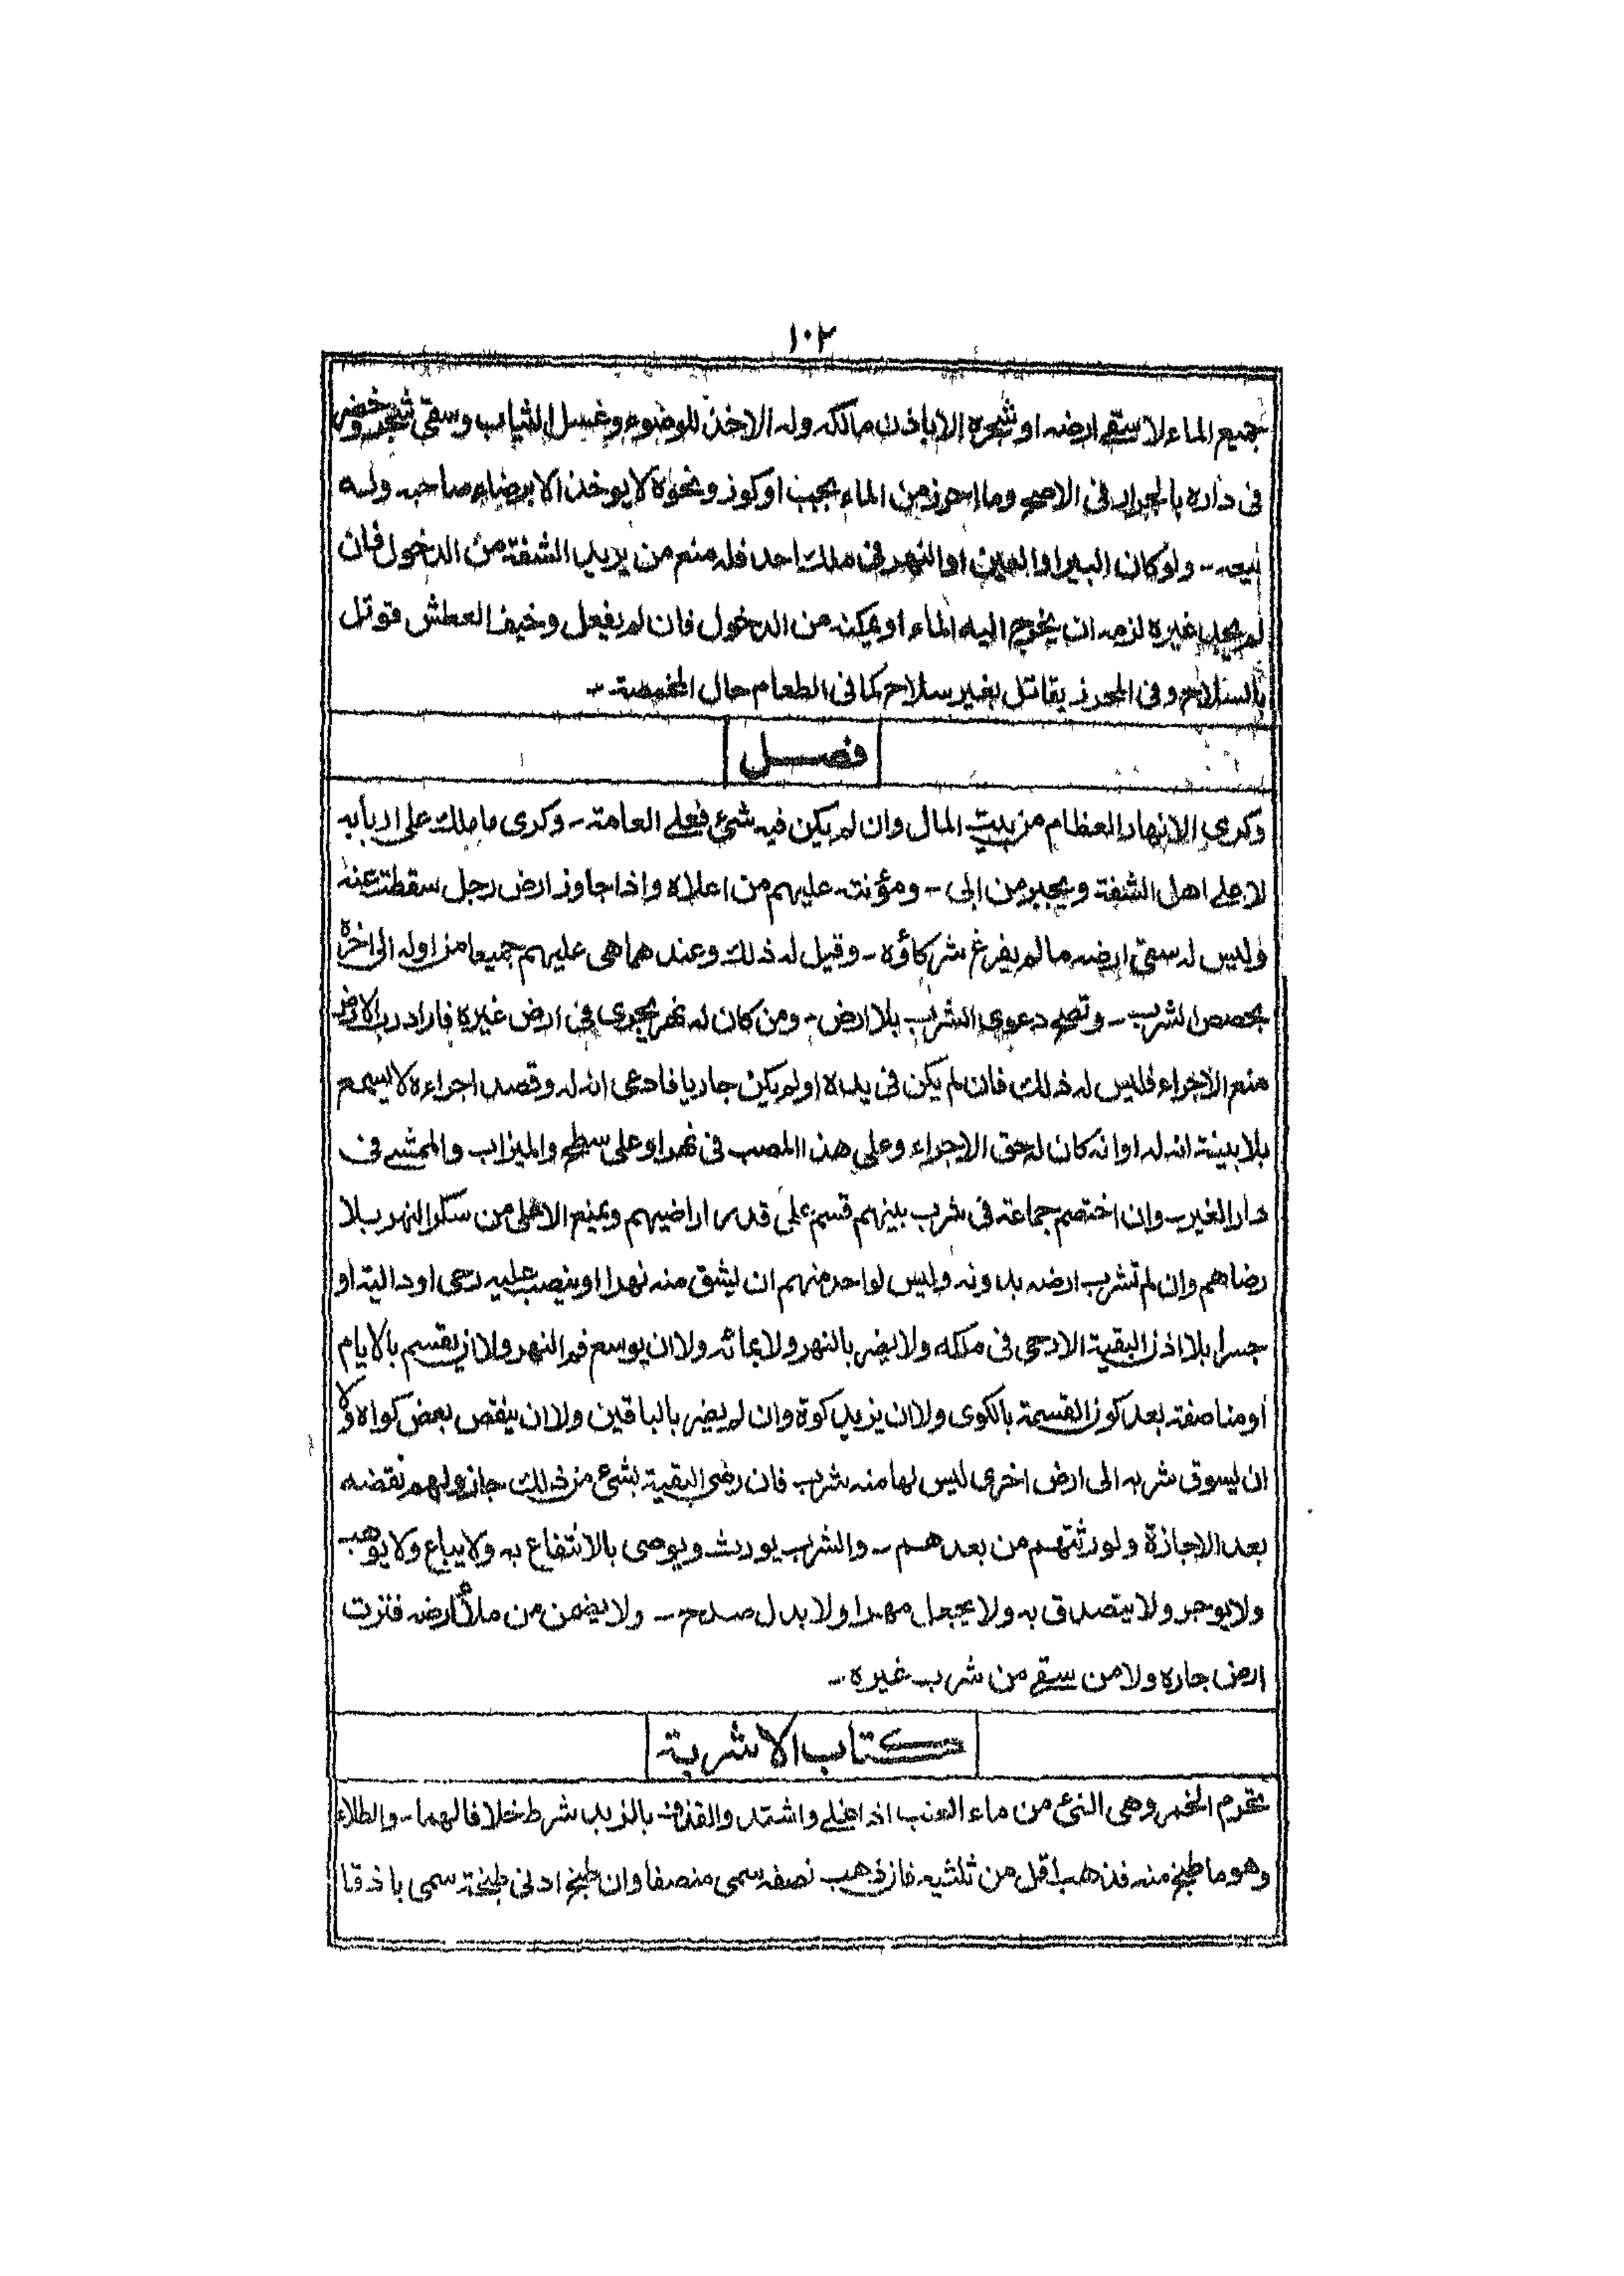 ١٠٢
جميع الماء لا سقى ارضه او شجره الا باذن مالكه وله الاخذ للوضوء وغسل الثياب وسقى شجر وخضر
فى داره بالجرار فى الاصح وما احرز من الماء بجب او كوز ونحوه لا يوخذ الا برضاء صاحبه وله
بيعه - ولو كان البير او العين او النهر فى ملك احد فله منع من يريد الشفة من الدخول فان
لم يجد غيره لزمه ان يخرج اليه الماء او يمكنه من الدخول فان لم يفعل وخيف العطش قوتل
بالسلاح وفى المحرز يقاتل بغير سلاح كما فى الطعام حال المخمصة -
فصل
وكرى الانهار العظام من بيت المال وان لم يكن فيه شئ فعلى العامة - وكرى ما ملك على اربابه
لا على اهل الشفة ويجبر من ابى - ومؤنته عليهم من اعلاه واذا جاوز ارض رجل سقطت عنه
وليس له سقى ارضه ما لم يفرغ شركاؤه - وقيل له ذلك وعندهما هى عليهم جميعا من اوله الى اخره
بحصص الشرب - وتصح دعوى الشرب بلا ارض - ومن كان له نهر يجرى فى ارض غيره فاراد رب الارض
منع الاجراء فليس له ذلك فان لم يكن فى يده او لم يكن جاريا فادعى انه له وقصد اجراءه لا يسمع
بلا بينة انه له او انه كان له حق الاجراء وعلى هذا المصب فى نهر او على سطح والميزاب والممشى فى
دار الغير وان اختصم جماعة فى شرب بينهم قسم على قدر اراضيهم ويمنع الاعلى من سكر النهر بلا
رضاهم وان لم تشرب ارضه بدونه وليس لواحد منهم ان يشق منه نهرا او ينصب عليه رحى او دالية او
جسرا بلا اذن البقية الا رحى فى ملكه ولا يضر بالنهر ولا بمائه ولا ان يوسع فم النهر ولا ان يقسم بالايام
او مناصفة بعد كون القسمة بالكوى ولا ان يزيد كوة وان لم يضر بالباقين ولا ان ينقص بعض كواه ولا
ان يسوق شربه الى ارض اخرى ليس لها منه شرب فان رضى البقية بشئ من ذلك جاز ولهم نقضه
بعد الاجازة ولورثتهم من بعدهم - والشرب يورث ويوصى بالانتفاع به ولا يباع ولا يوهب
ولا يوجر ولا يتصدق به ولا يجعل مهرا ولا بدل صلح - ولا يضمن من ملأ ارضه فنزت
ارض جاره ولا من سقى من شرب غيره -
كتاب الاشربة
تحرم الخمر وهى النئ من ماء العنب اذا غلى واشتد والقذف بالزبد شرط خلافا لهما - والطلاء
وهو ما طبخ منه فذهب اقل من ثلثيه فان ذهب نصفه سمى منصفا وان طبخ ادنى طبخة سمى باذقا